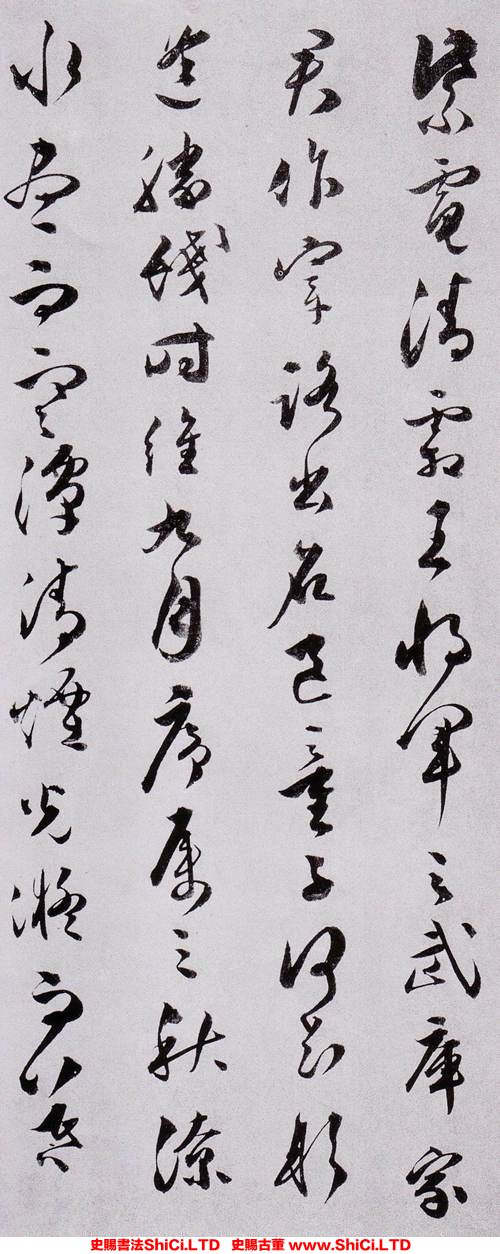 紫電清霜王將軍之武庫家
君作宰路出名區童子何知躬
逢勝餞時維九月序屬三秋潦
水盡而寒潭清煙光凝而暮
史賜書法ShiCi.LTD 史賜古董 www.ShiCi.LTD